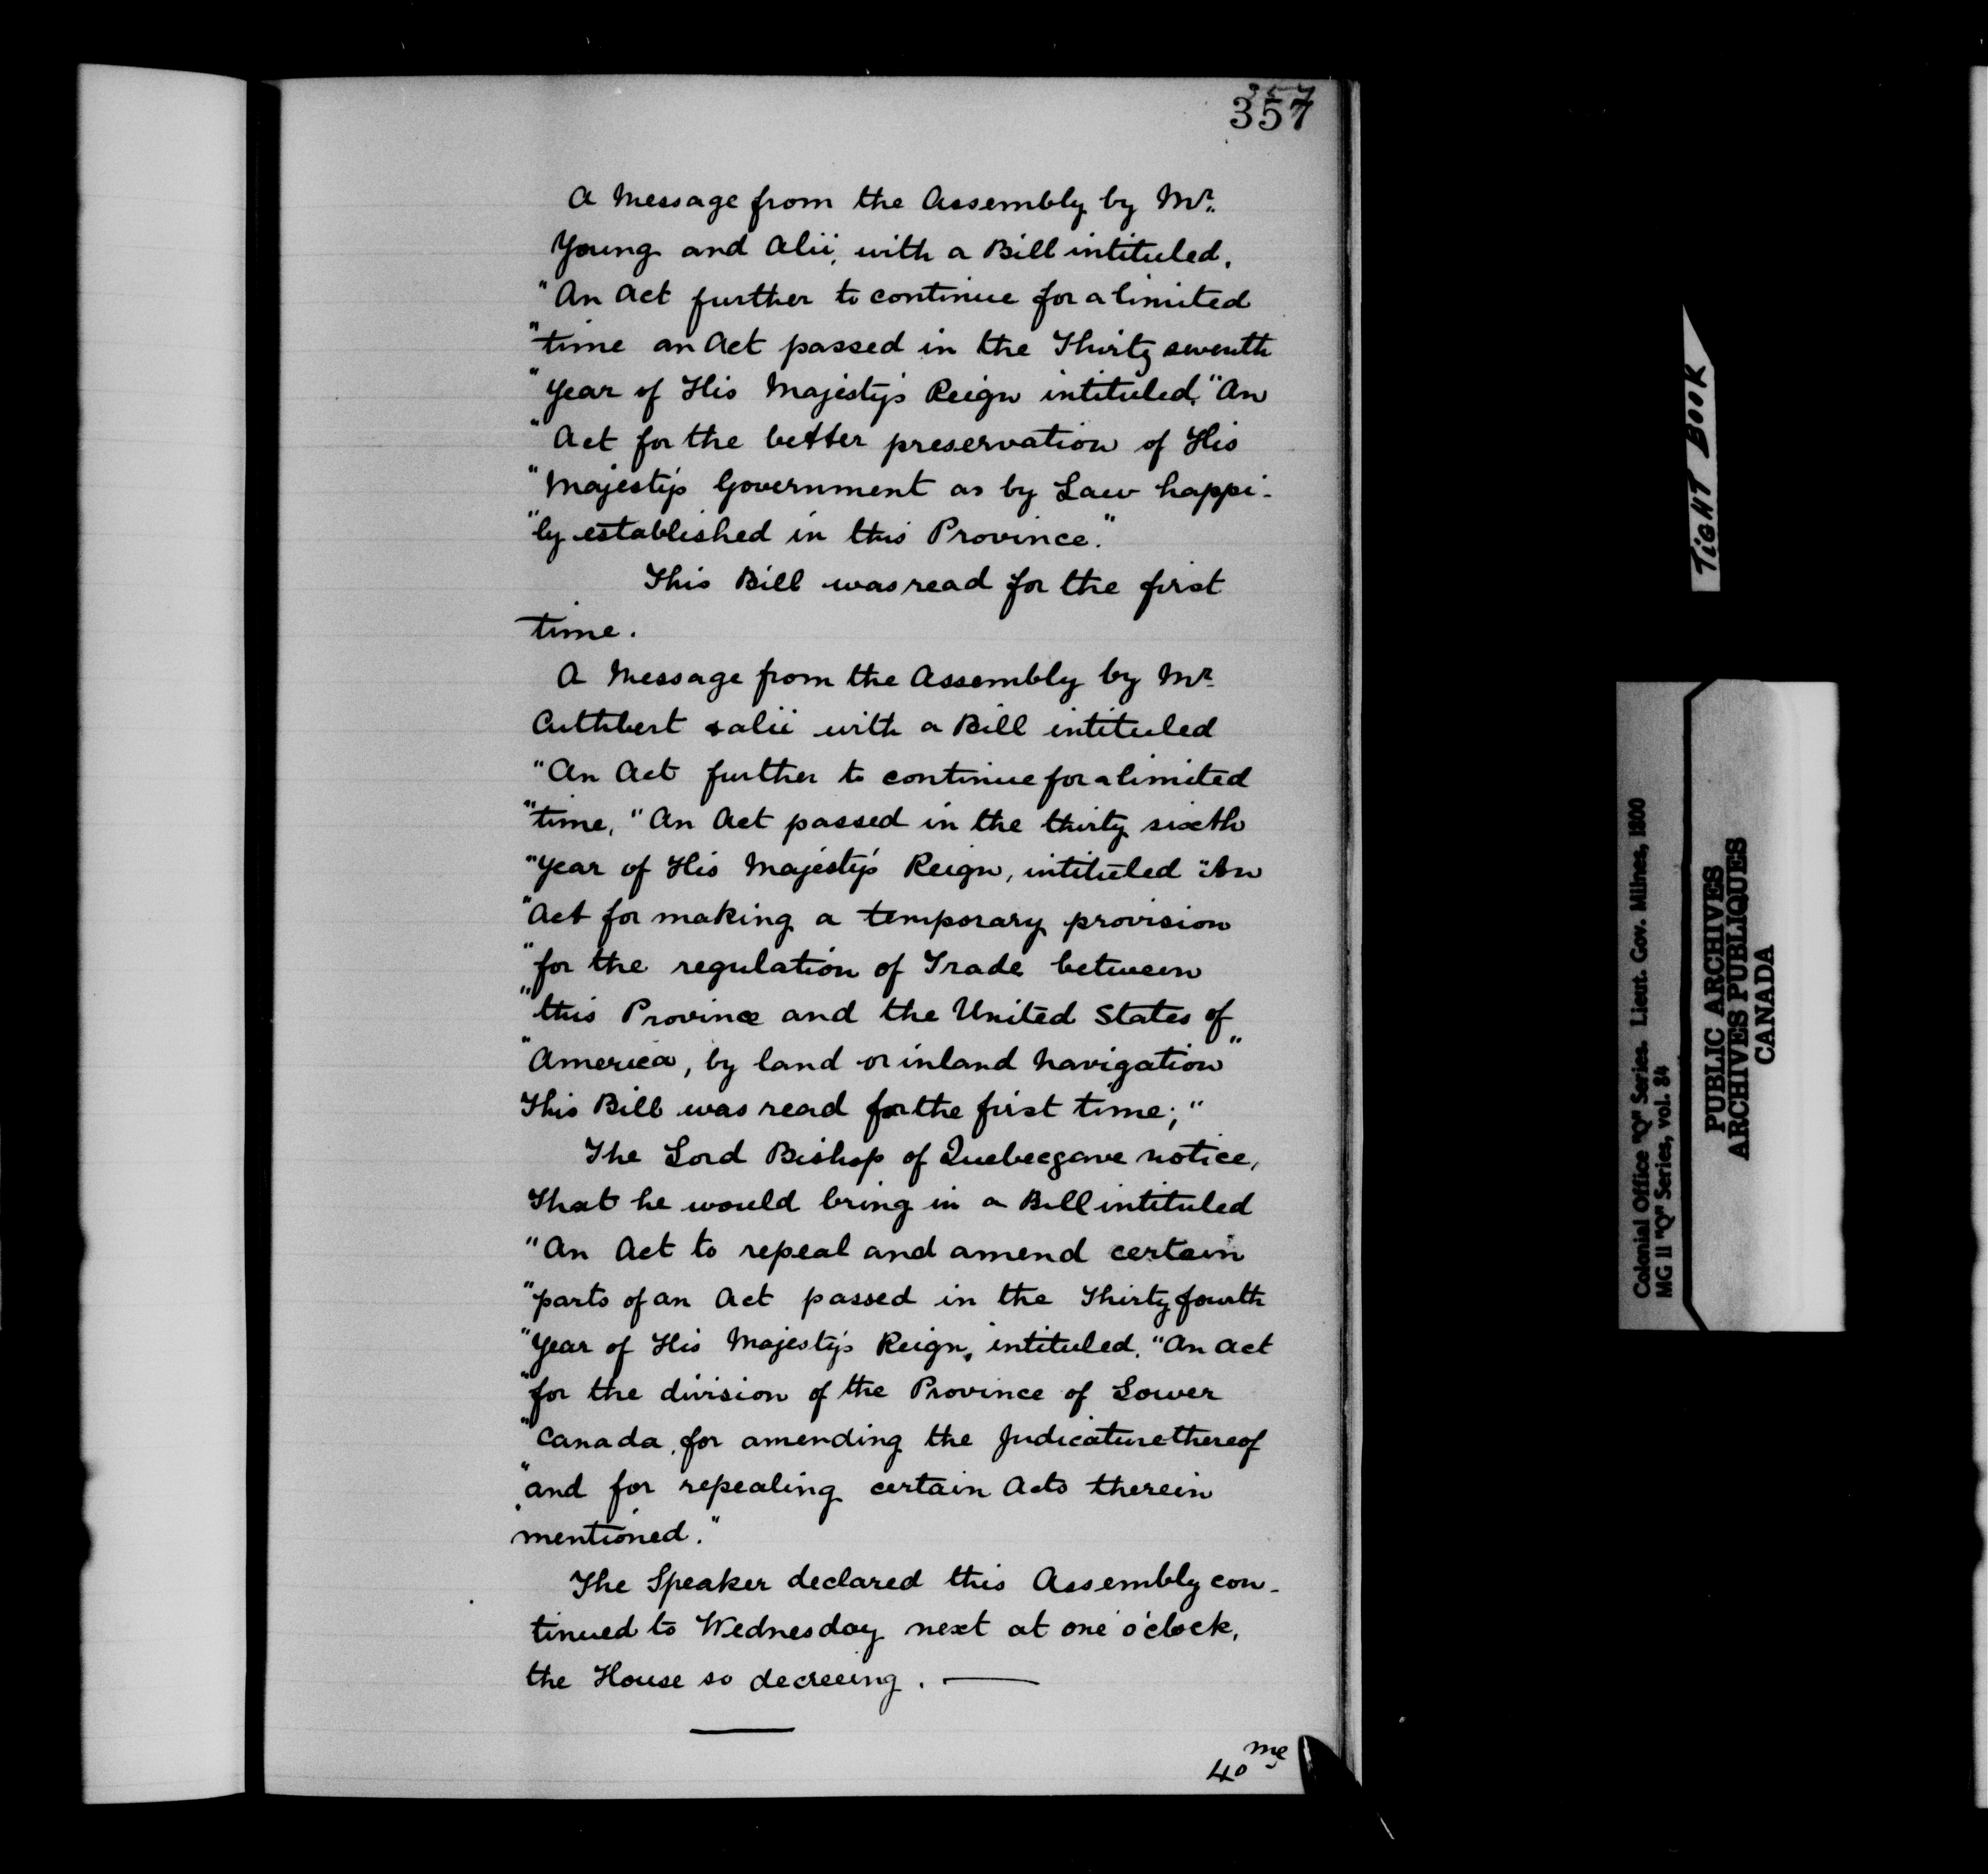 357
357
A Message from the Assembly by Mr.
Young and Alii, with a Bill intituled,
"An Act further to continue for a limited
"time an Act passed in the Thirty seventh
"Year of His Majesty's Reign intituled, "An
"Act for the better preservation of His
"Majesty's Government as by Law happi-
"ly established in this Province."
This Bill was read for the first
time.
A Message from the Assembly by Mr.
Cuthbert & alii with a Bill intituled
"An Act further to continue for a limited
"time, "An Act passed in the thirty sixth
"Year of His Majesty's Reign, intituled "An
"Act for making a temporary provision
"for the regulation of Trade between
"this Province and the United States of
"America, by land or inland Navigation"
This Bill was read for the first time;"
The Lord Bishop of Quebec gave notice,
That he would bring in a Bill intituled
"An Act to repeal and amend certain
"parts of an Act passed in the Thirty fourth
"Year of His Majesty's Reign, intituled, "An Act
"for the division of the Province of Lower
"Canada, for amending the Judicature thereof
"and for repealing certain Acts therein
mentioned."
The Speaker declared this Assembly con-
tinued to Wednesday next at one o'clock,
the House so decreeing.
40me
TIGHT BOOK
Colonial Office "Q" Series. Lieut. Gov. Milnes, 1800
MG 11 "Q" Series, vol. 84
PUBLIC ARCHIVES
ARCHIVES PUBLIQUES
CANADA